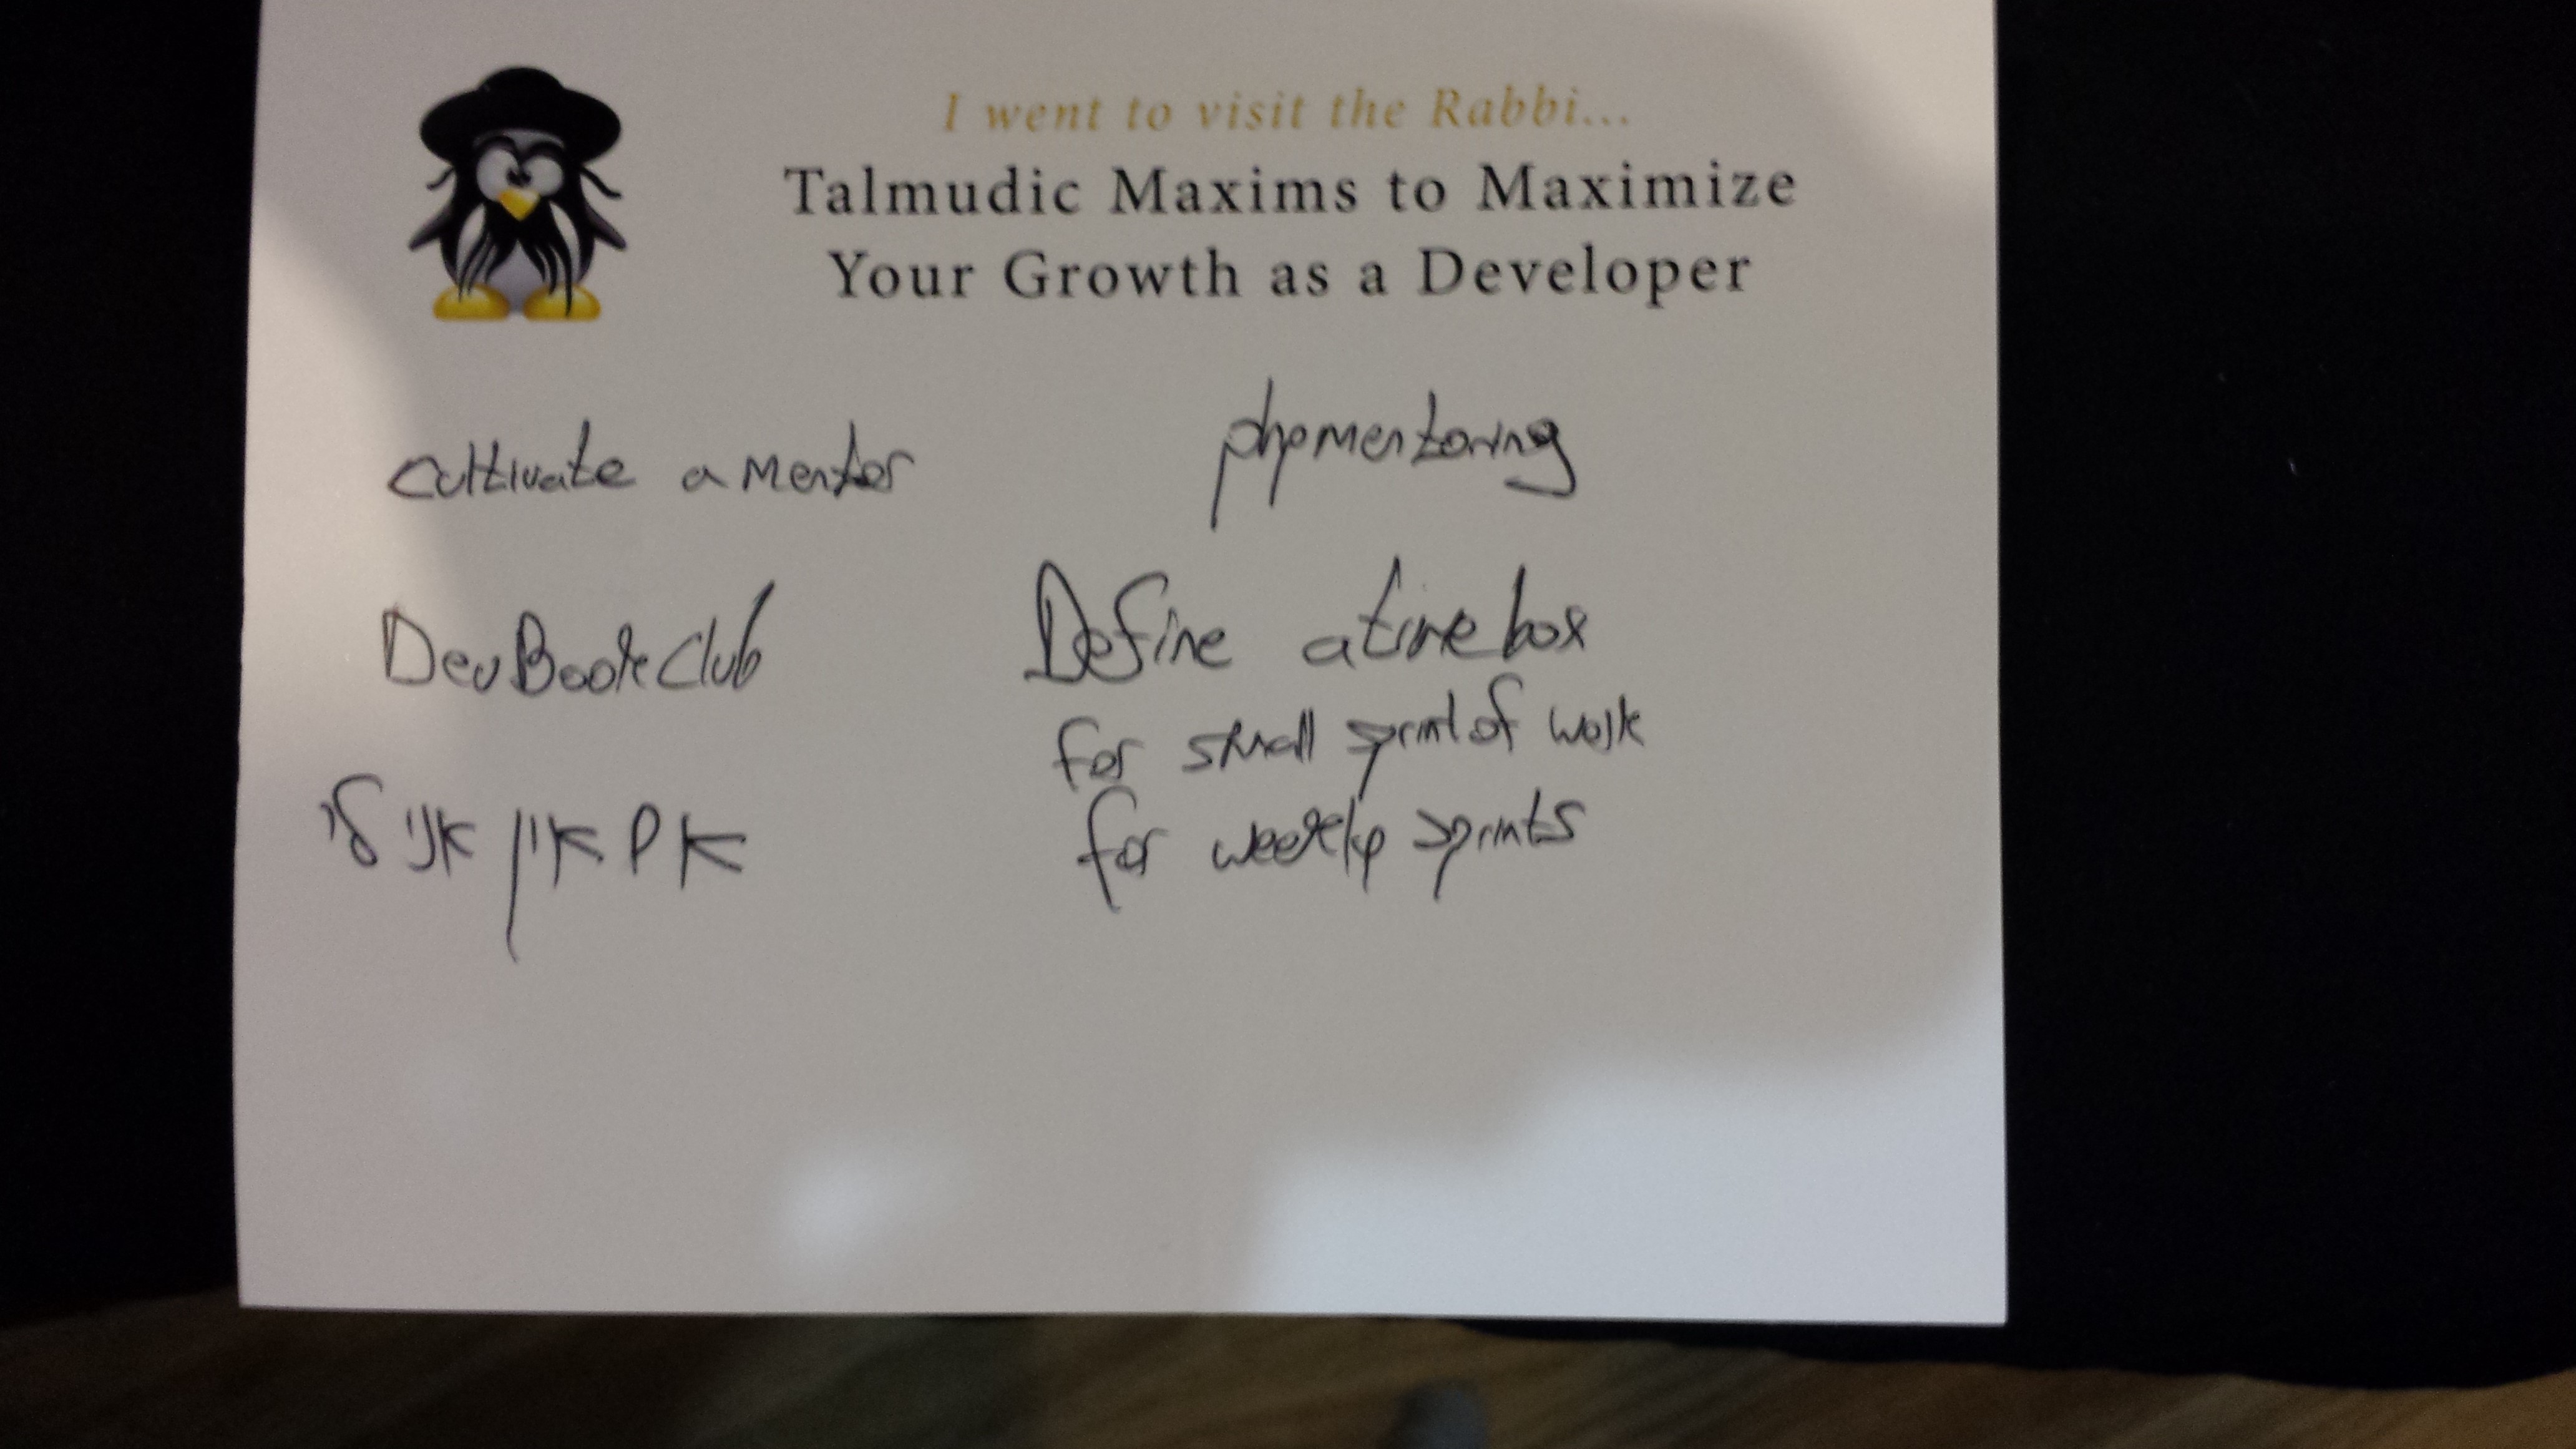 I went to visit the Rabbi...
Talmudic Maxims to Maximize
Your Growth as a Developer
cultivate a mentor
DevBookClub
אם אין אני לי
phpmentoring
Define a time box
for small sprint of work
for weekly sprints